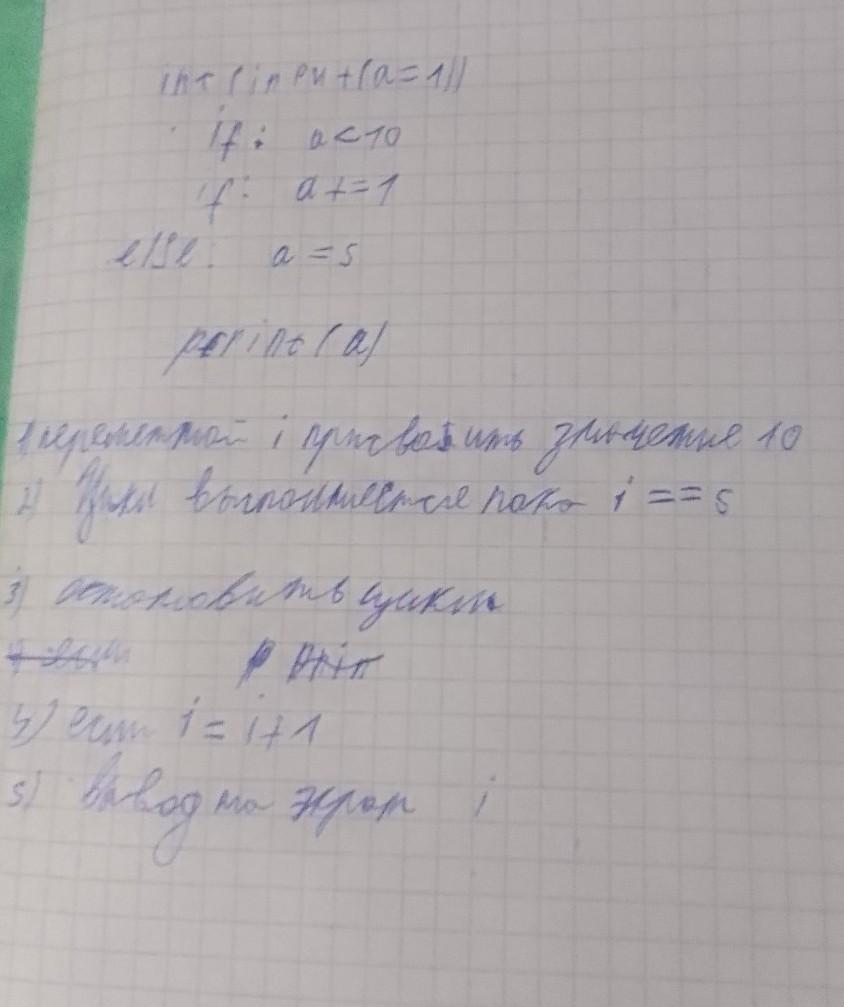 int(input(a=1))
if: a<10
if: a+=1
else: a=5
print(a)
1 переменной i присвоить значение 10
2) Цикл выполняется пока i==5
3) остановить цикл
4) если i=i+1
5) вывод на экран i